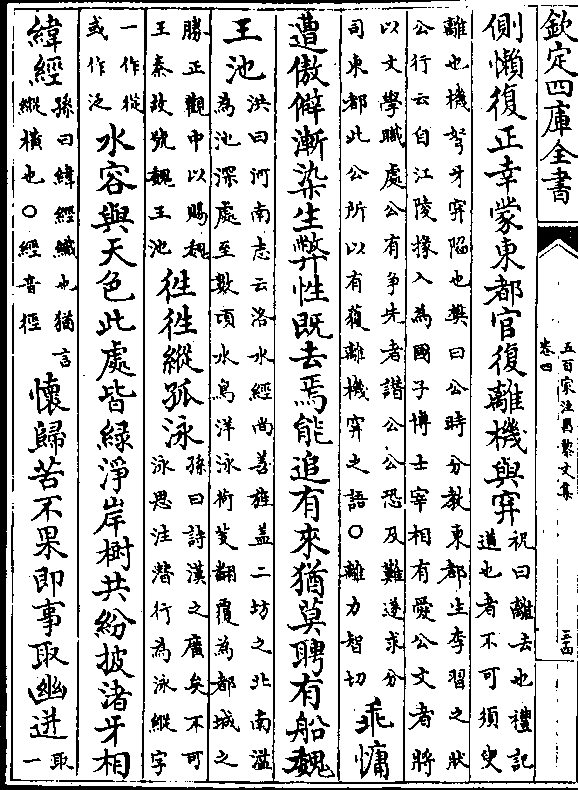 欽定四庫全書
五百家注昌黎文集
卷四
側懶復正幸蒙東都官復離機與穽
祝曰離去也禮記
道也者不可須臾
離也機弩牙穽陷也樊曰公時分教東都生李習之狀
公行云自江陵掾入為國子博士宰相有愛公文者將
以文學職處公有爭先者譖公公恐及難遂求分
司東都此公所以有獲離機穽之語〇離力智切
乖慵
遭傲僻漸染生弊性既去焉能追有來猶莫聘有船魏
王池
洪曰河南志云洛水經尚善旌盖二坊之北南溢
為池深處至數頃水鳥洋泳荷芰翻覆為都城之
勝正觀中以賜魏
王泰故號魏王池
徃徃縱孤泳
孫曰詩漢之廣矣不可
泳思注潛行為泳縱字
一作從
或作泛
水容與天色此處皆緑淨岸樹共紛披渚牙相
緯經
孫曰緯經織也猶言
縱橫也〇經音徑
懷歸苦不果即事取幽迸
取
一